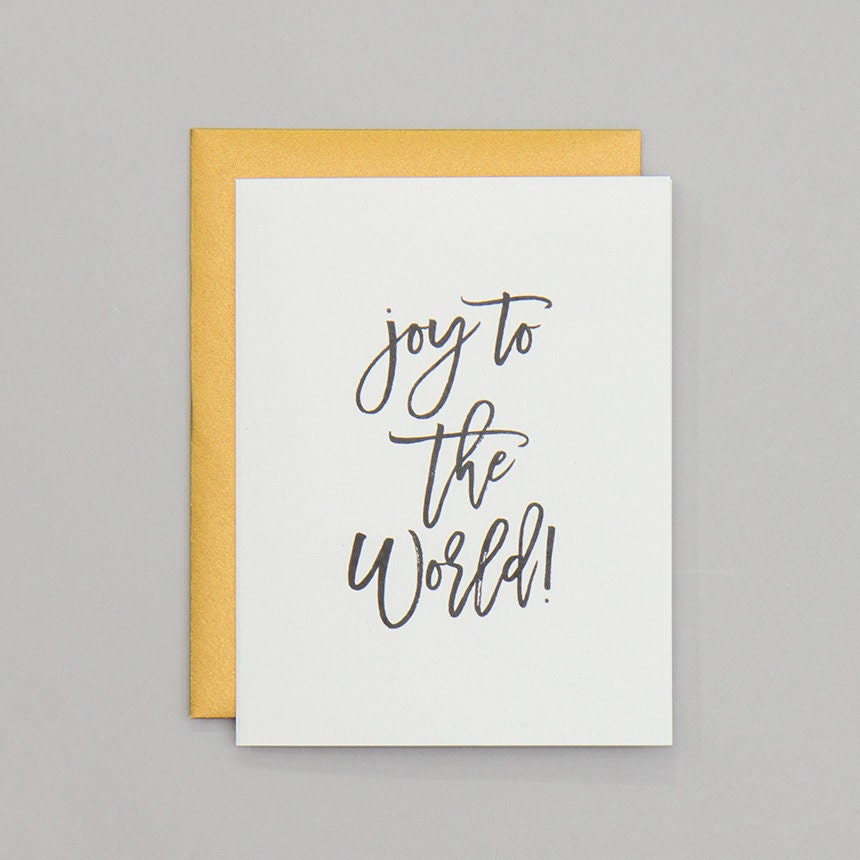 joy to
the
World!